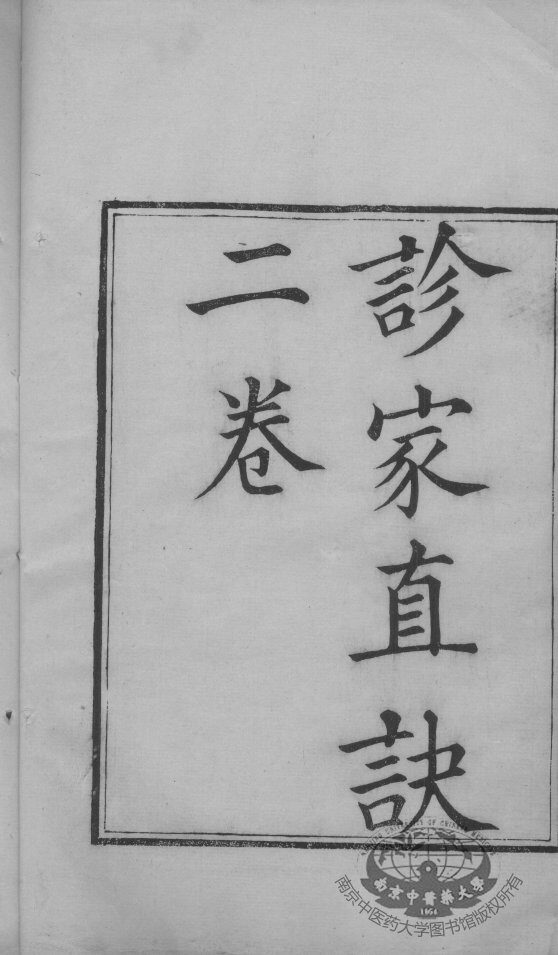 診家直訣
二卷
南京中醫藥大學
1954
南京中医药大学图书馆版权所有